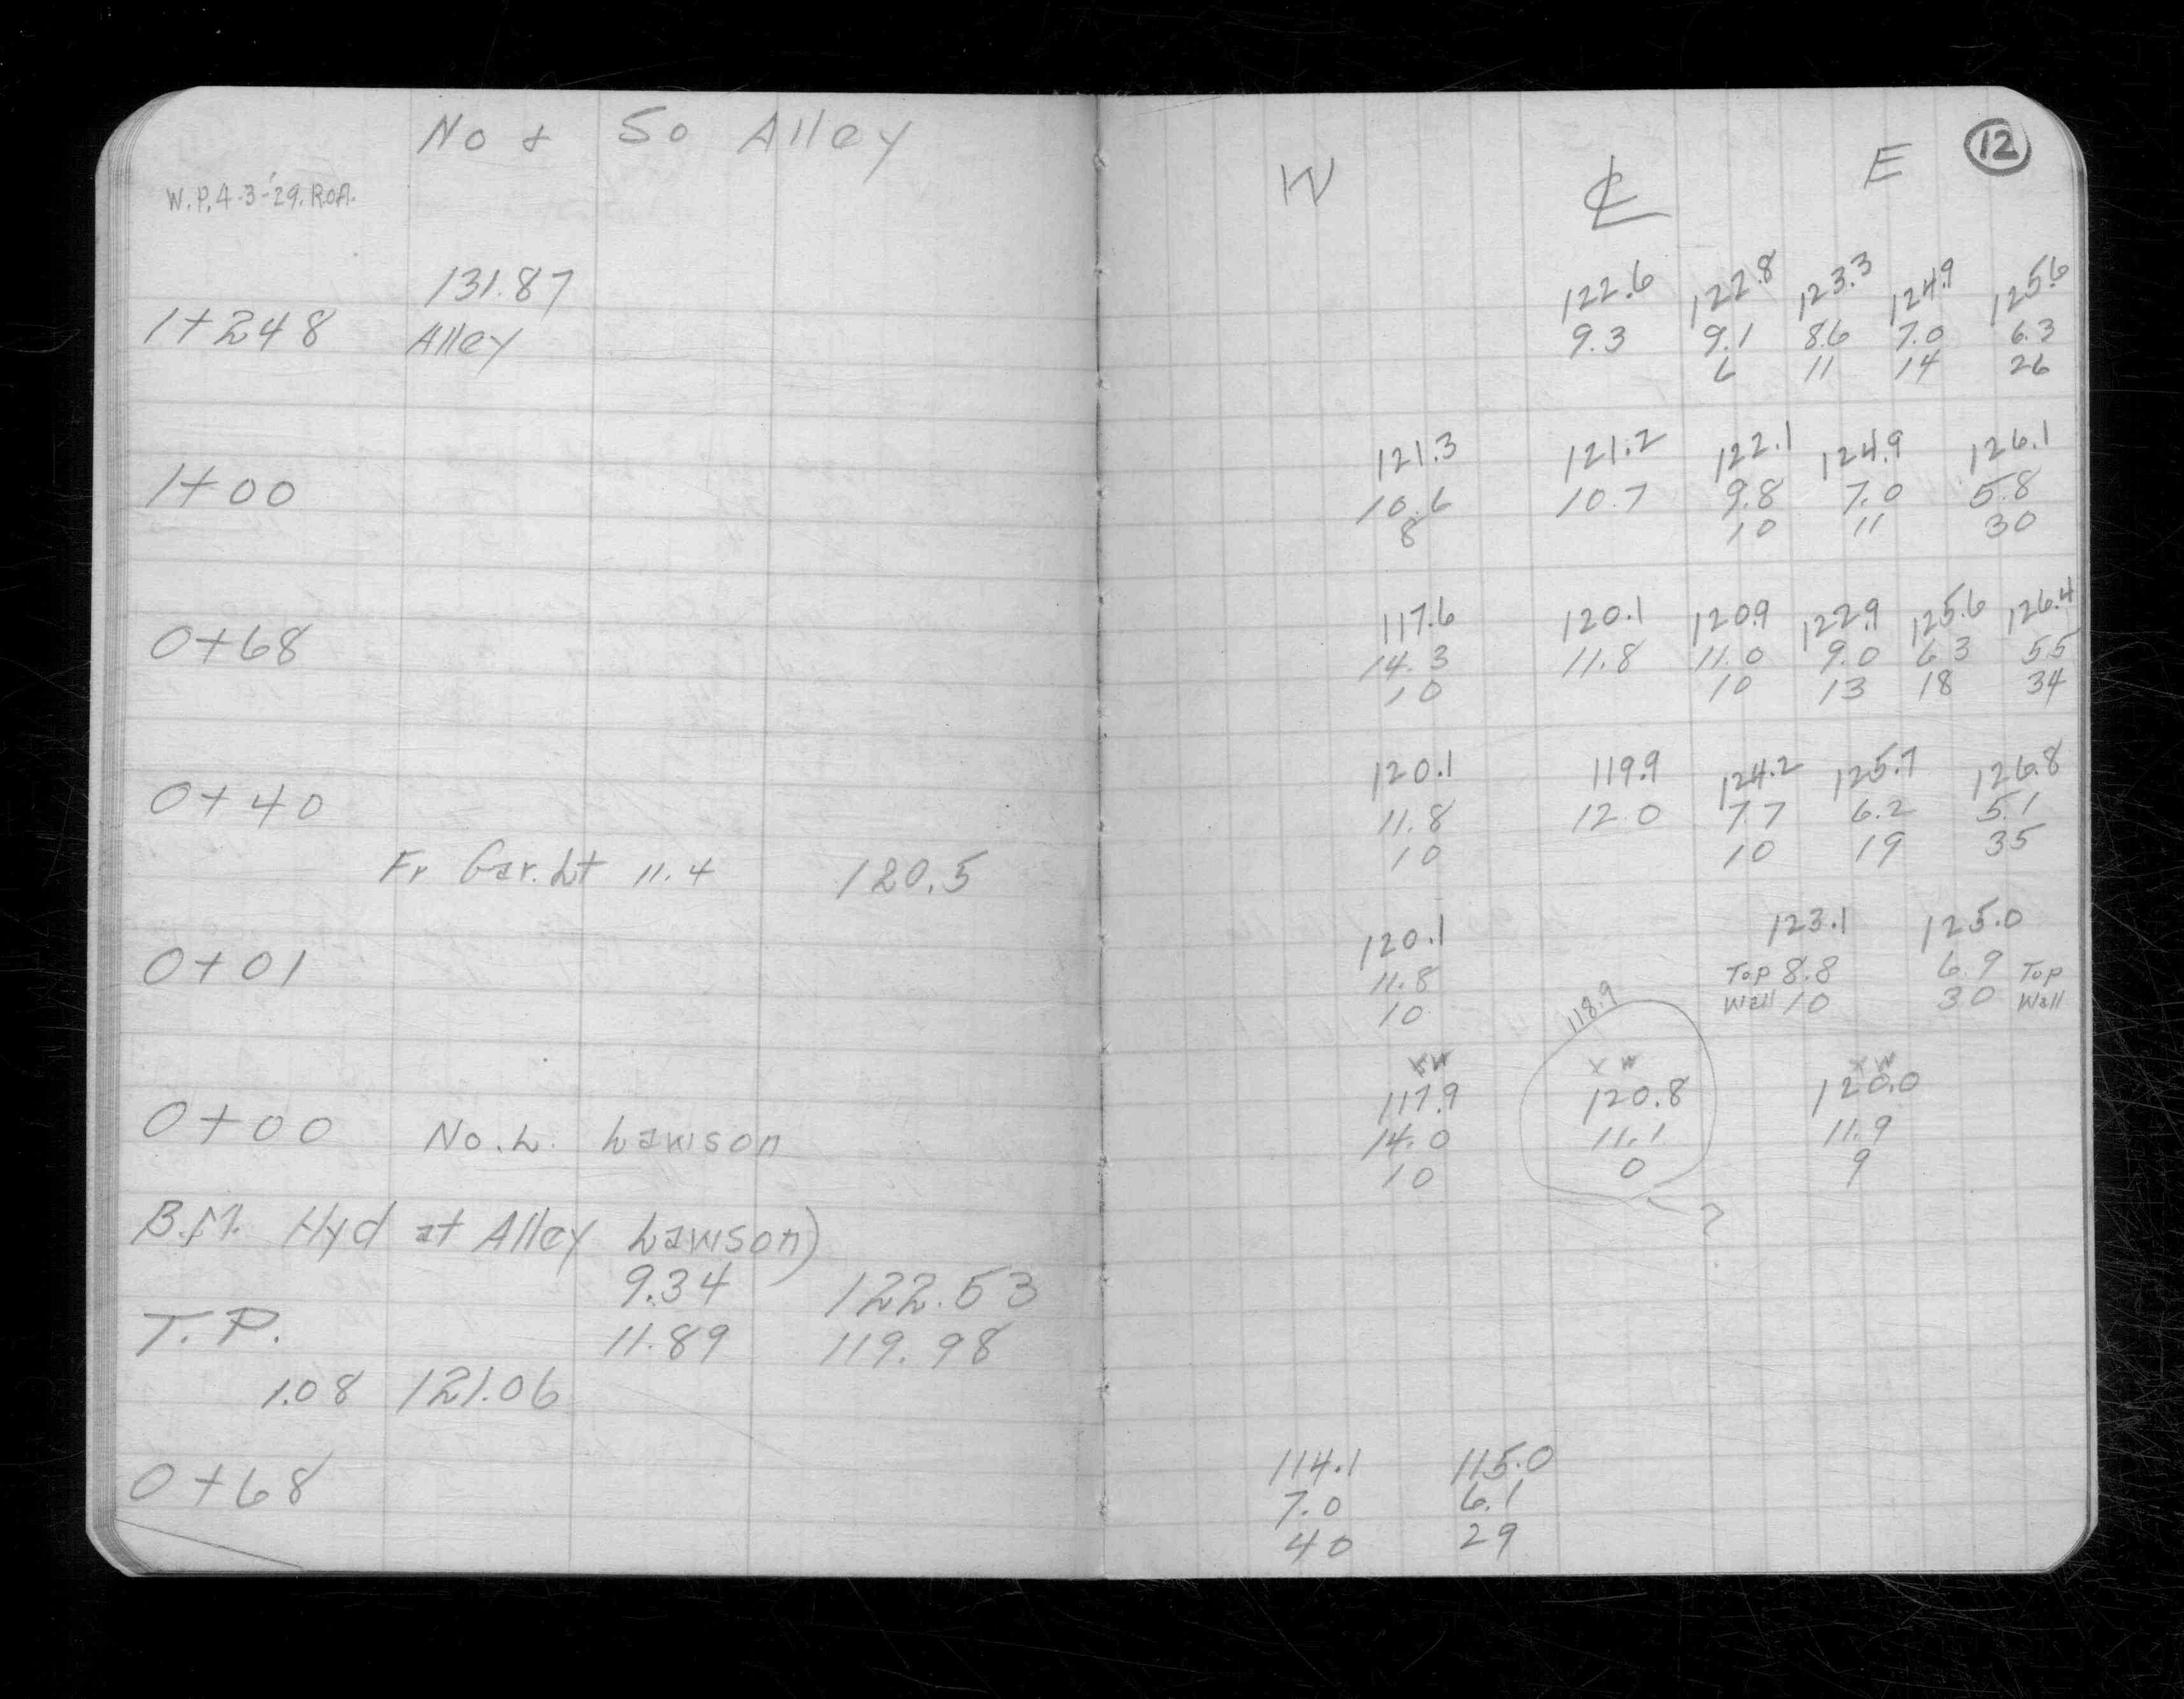 No & So Alley
W E 12
W.P. 4-3-'29. R.O.A.
131.87 122.6 122.8 123.3 124.9 125.6
1+248 Alley 9.3 9.1 8.6 7.0 6.3
6 11 14 26
121.3 121.2 122.1 124.9 126.1
1+00 10.6 10.7 9.8 7.0 5.8
8 10 11 30
117.6 120.1 120.9 122.9 125.6 126.4
0+68 14.3 11.8 11.0 9.0 6 3 5.5
10 10 13 18 34
120.1 119.9 124.2 125.7 126.8
0+40 11.8 12.0 7 7 6.2 5.1
10 10 19 35
Fr Gar. Lt 11.4 120.5
120.1 123.1 125.0
0+01 11.8 Top 8.8 6.9 Top
10 Wall 10 30 Wall
118.9
XW X W X W
117.9 120.8 120.0
0+00 No. L. Lawson 14.0 11.1 11.9
10 0 9
?
B.M. Hyd at Alley Lawson)
9.34 122.53
T.P. 11.89 119.98
1.08 121.06
114.1 115.0
0+68 7.0 6.1
40 29